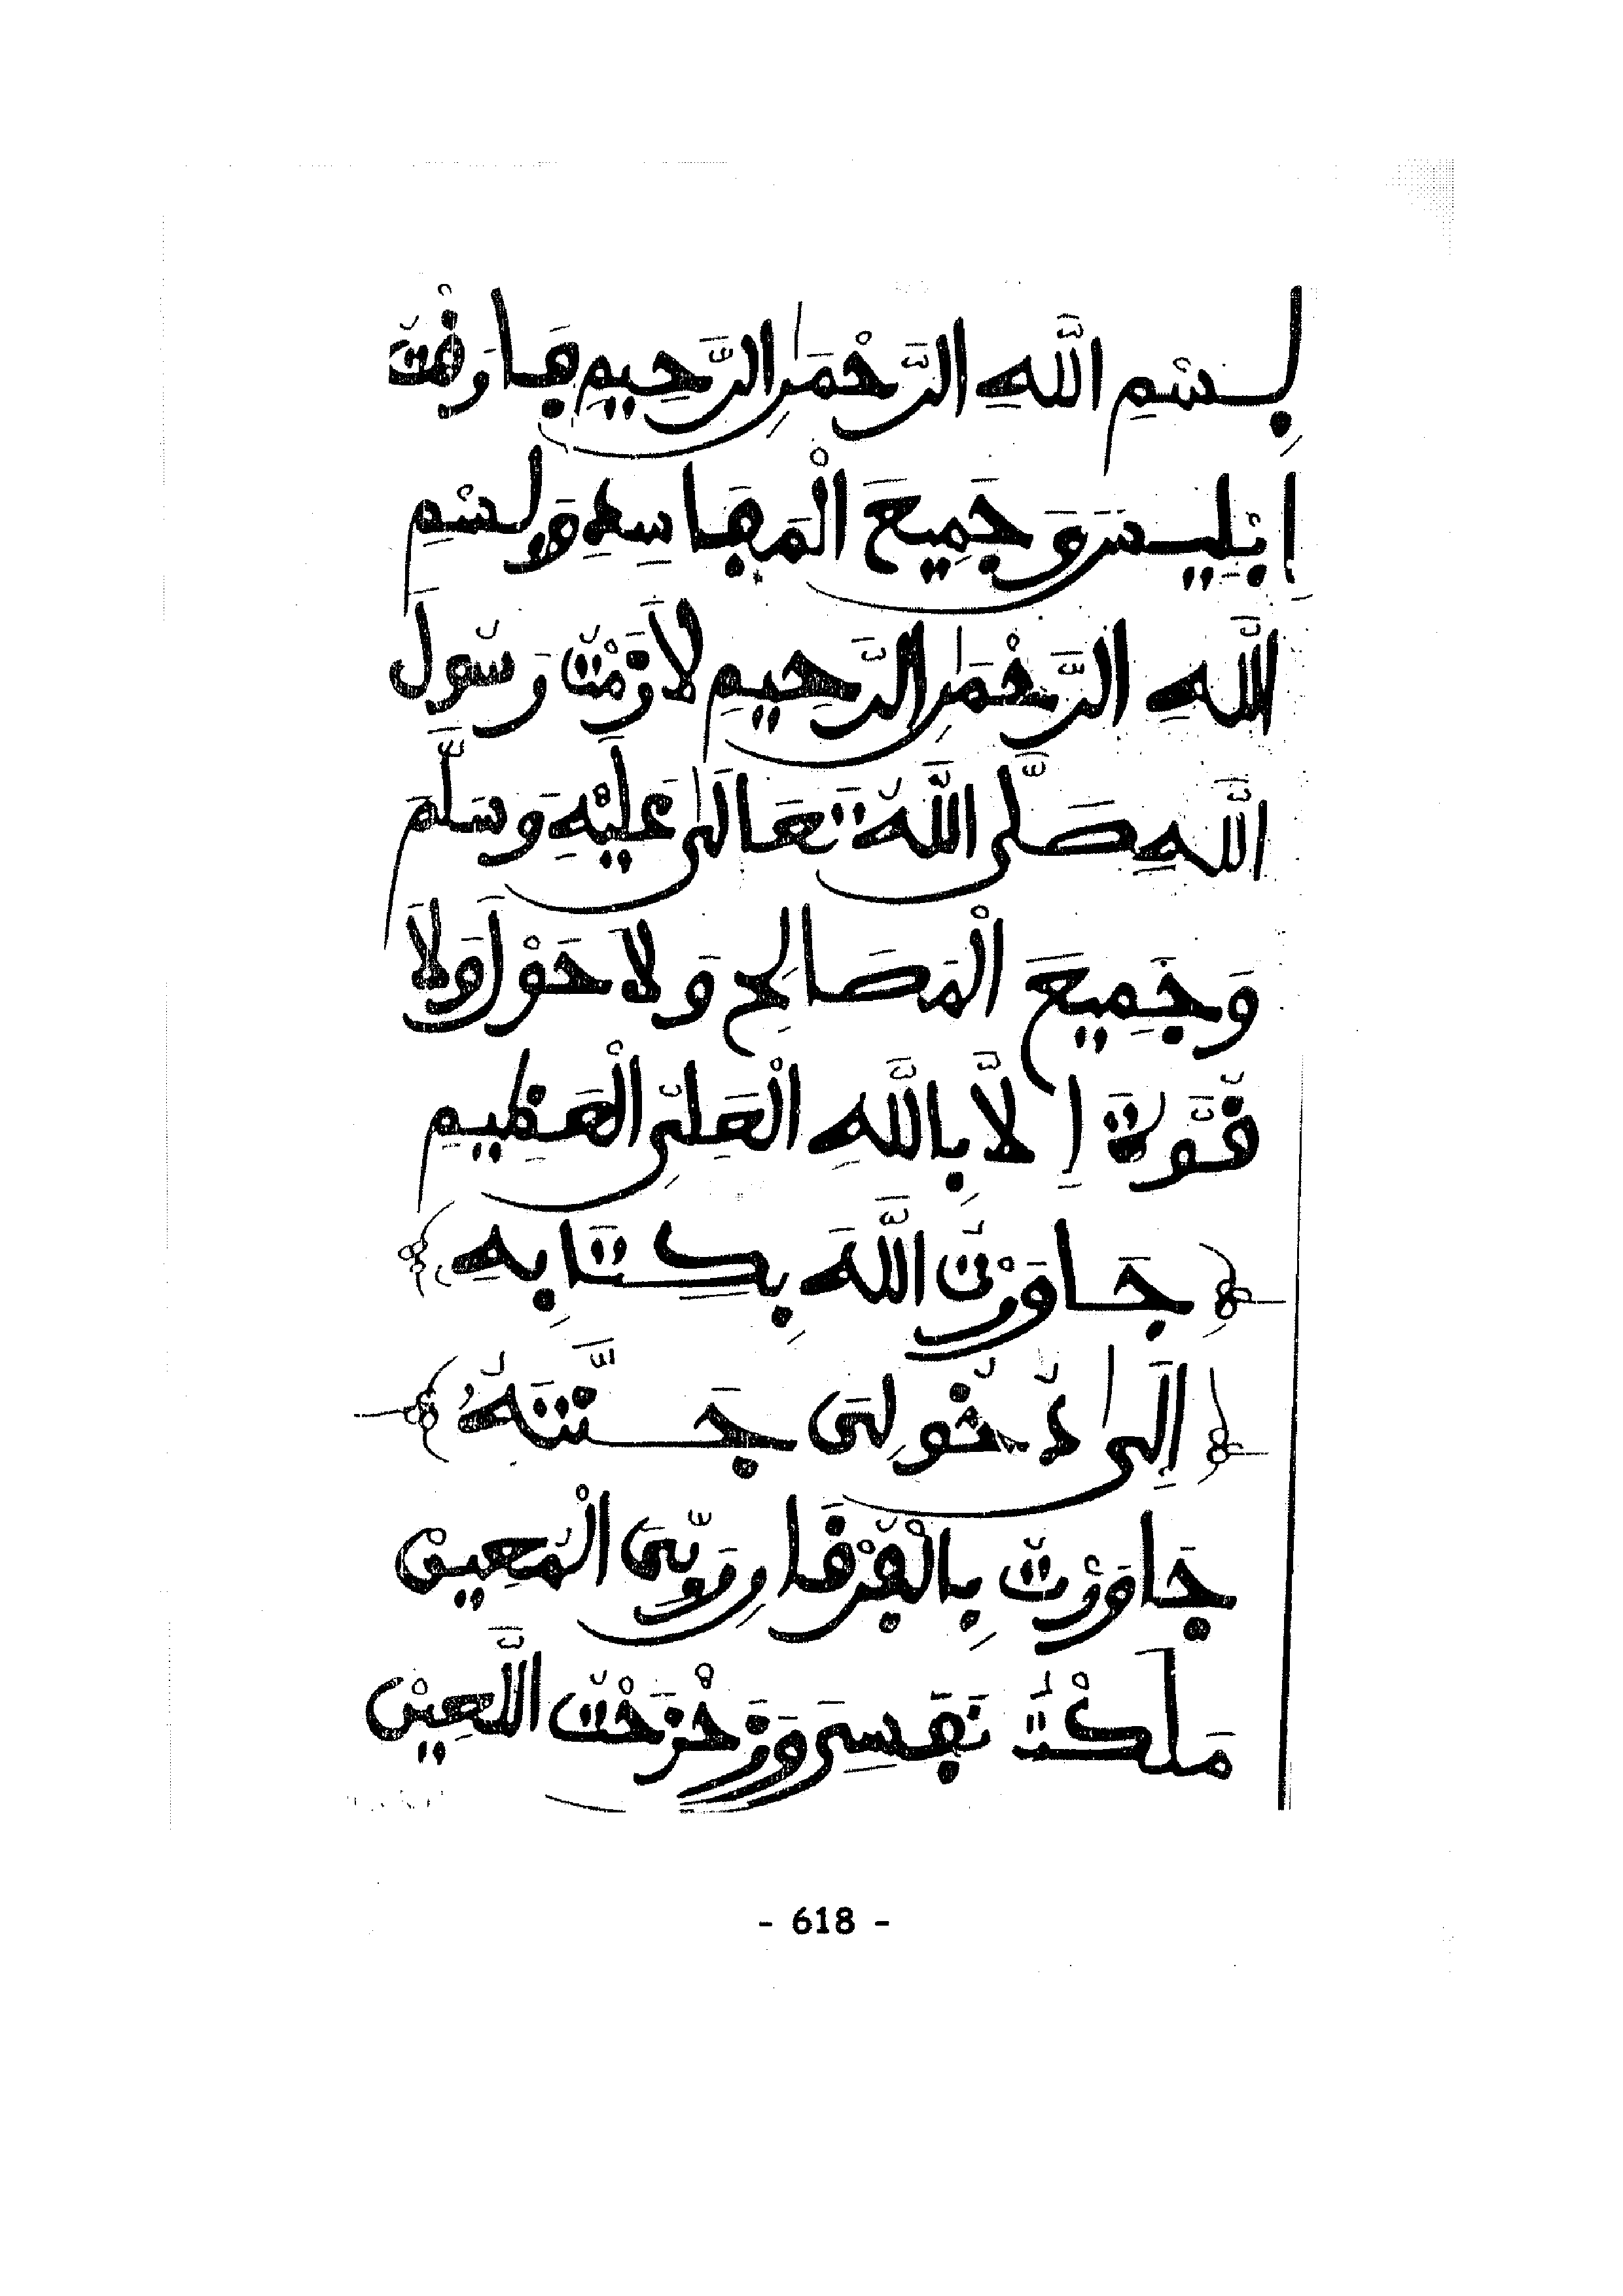 بِسْمِ اللَّهِ الرَّحْمَٰنِ الرَّحِيمِ فَارَقْتُ
إِبْلِيسَ وَجَمِيعَ الْمَفَاسِدِ وَبِسْمِ
اللَّهِ الرَّحْمَٰنِ الرَّحِيمِ لَازَمْتُ رَسُولَ
اللَّهِ صَلَّى اللَّهُ تَعَالَىٰ عَلَيْهِ وَسَلَّمَ
وَجَمِيعَ الْمَصَالِحِ وَلَا حَوْلَ وَلَا
قُوَّةَ إِلَّا بِاللَّهِ الْعَلِيِّ الْعَظِيمِ
جَاوَرْتُ اللَّهَ بِكِتَابِهِ
إِلَىٰ دُخُولِي جَنَّتَهُ
جَاوَرْتُ بِالْفُرْقَانِ رَبِّيَ الْمُعِينْ
مَلَكْتُ نَفْسِي وَزَحْزَحْتُ اللَّعِينْ
- 618 -